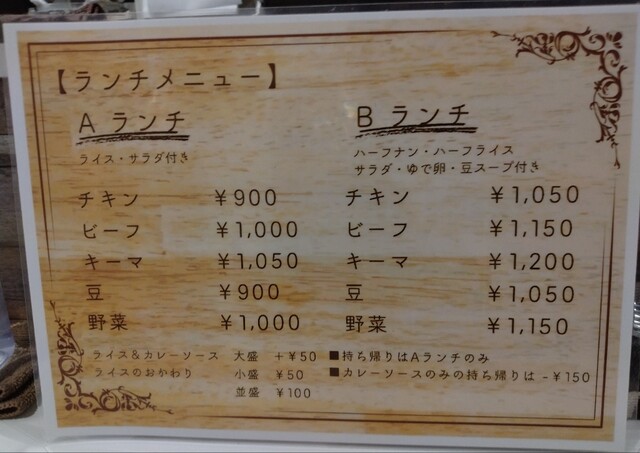 【ランチメニュー】
A ランチ
ライス・サラダ付き
チキン ￥900
ビーフ ￥1,000
キーマ ￥1,050
豆 ￥900
野菜 ￥1,000
B ランチ
ハーフナン・ハーフライス
サラダ・ゆで卵・豆スープ付き
チキン ￥1,050
ビーフ ￥1,150
キーマ ￥1,200
豆 ￥1,050
野菜 ￥1,150
ライス＆カレーソース 大盛 ＋￥50
ライスのおかわり 小盛 ￥50
並盛 ￥100
■持ち帰りはAランチのみ
■カレーソースのみの持ち帰りは -￥150